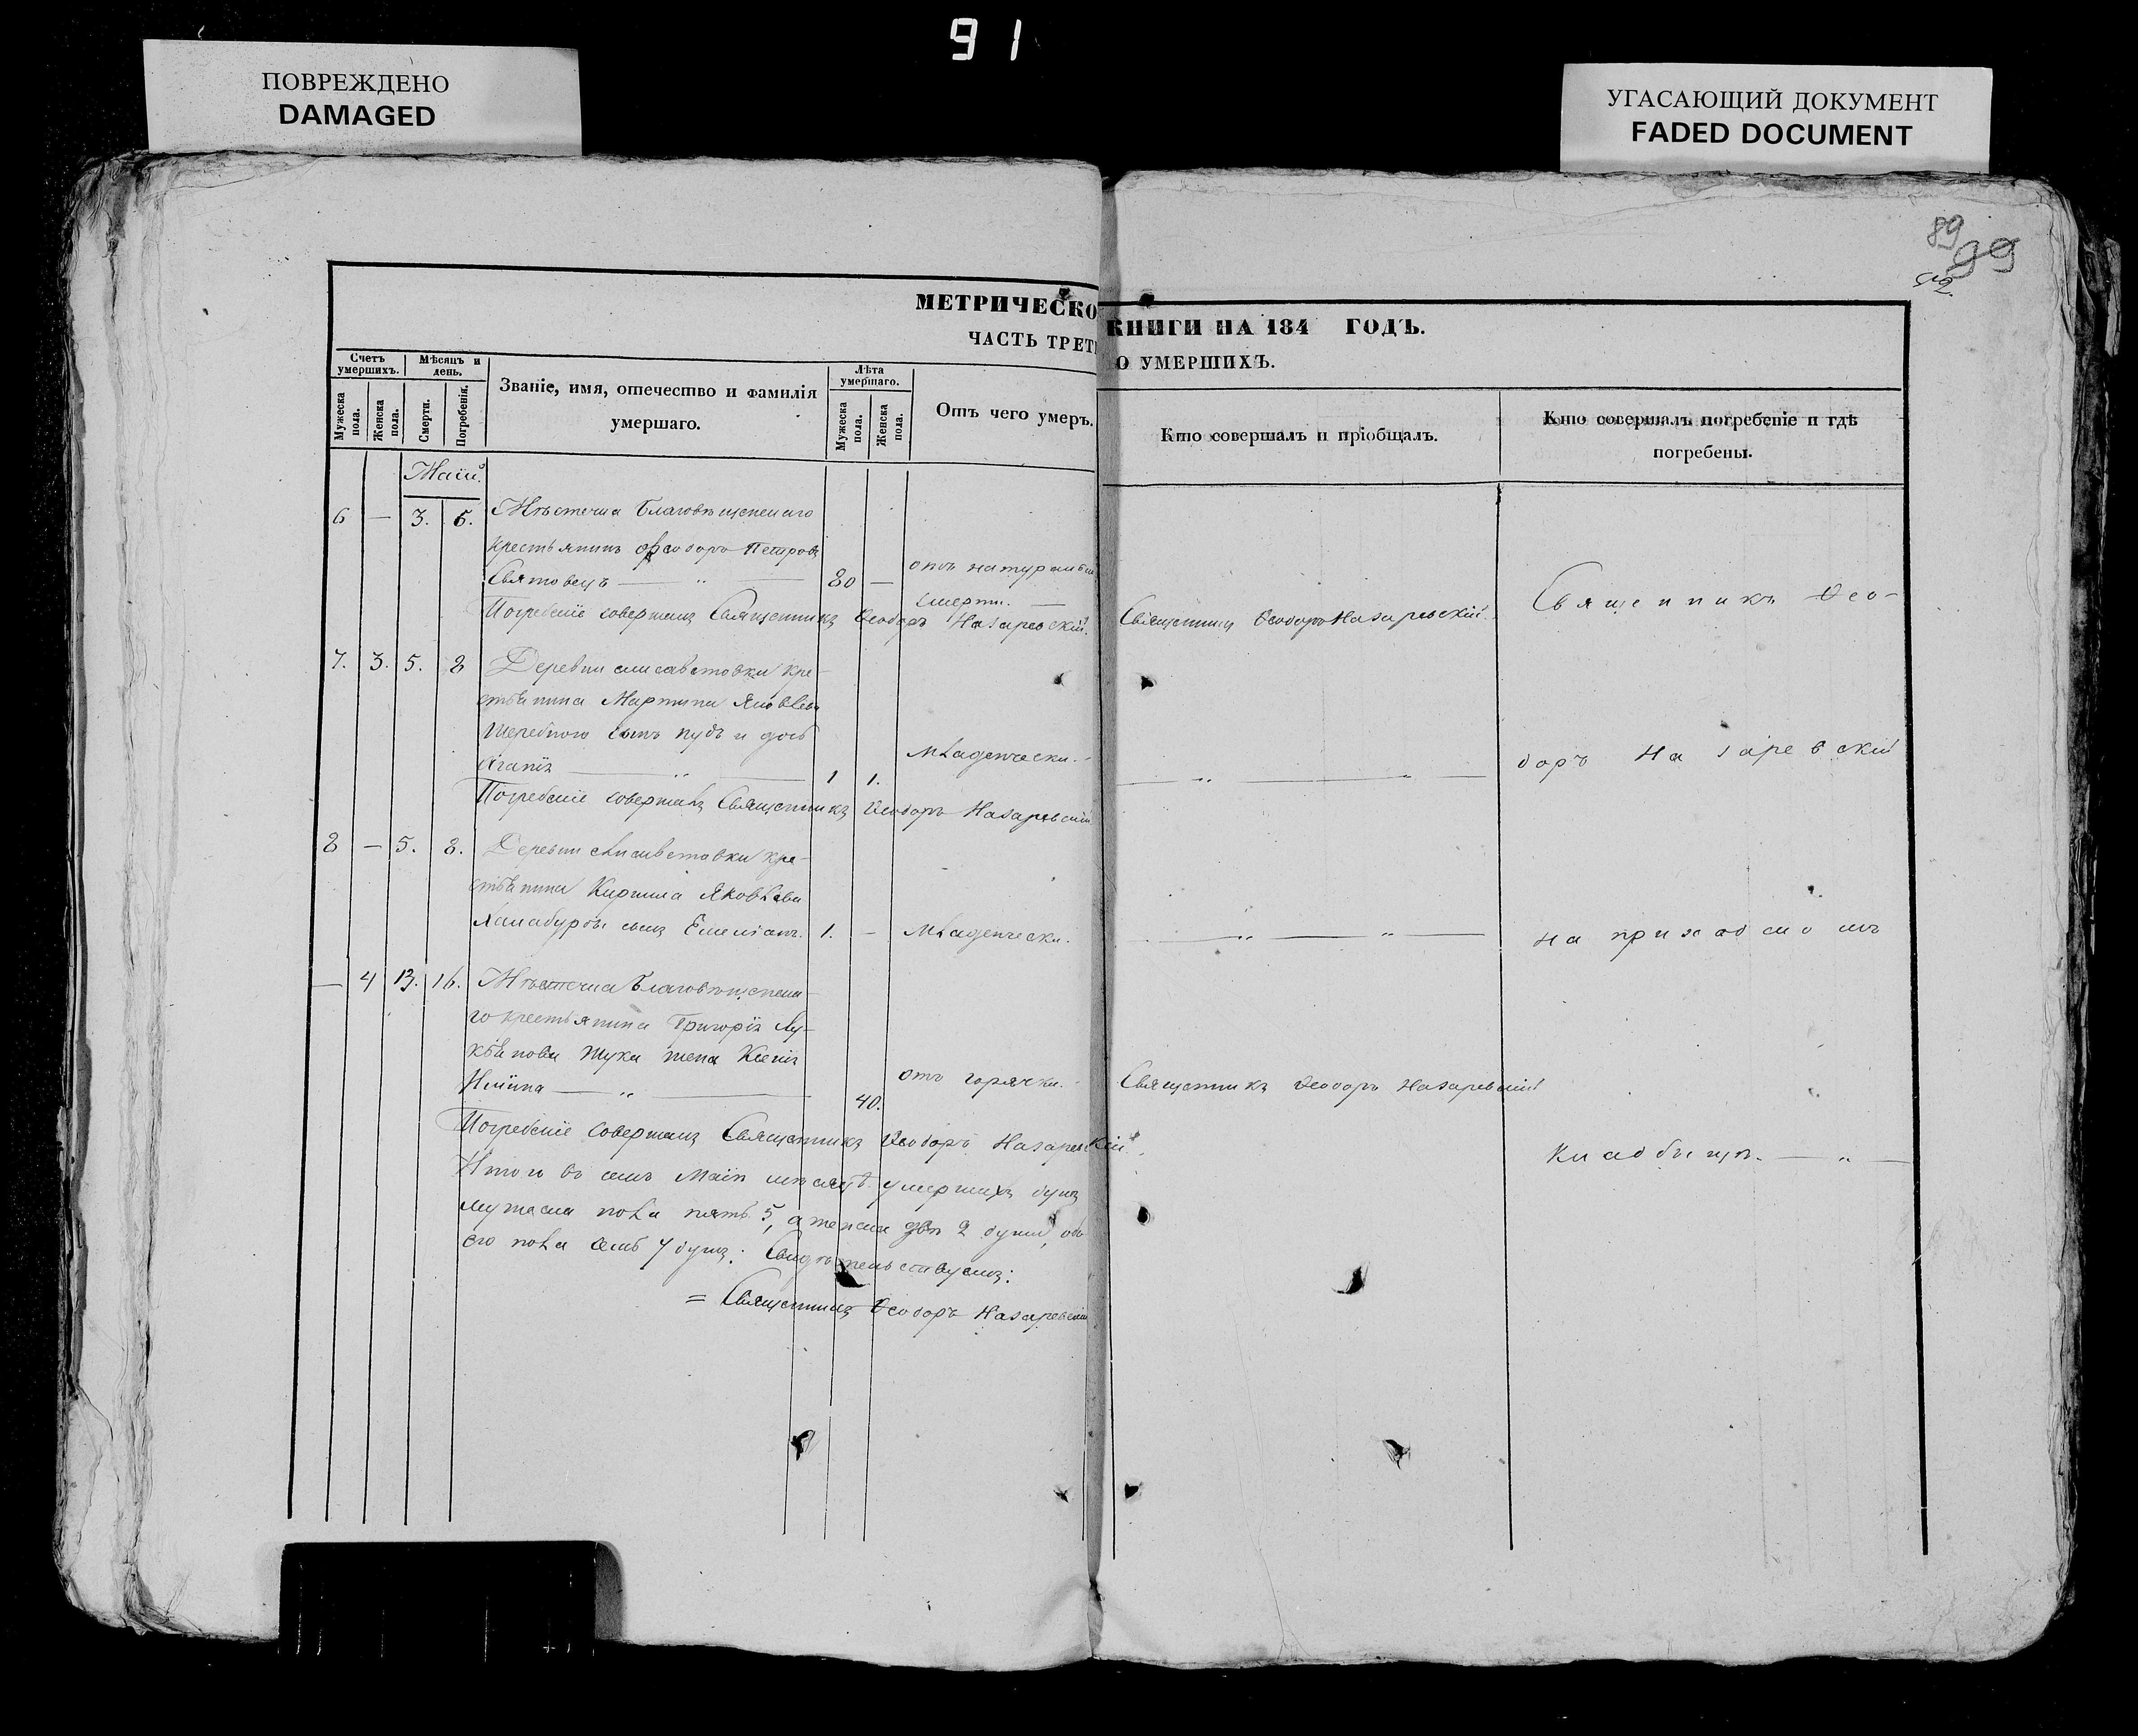 91
ПОВРЕЖДЕНО
DAMAGED
УГАСАЮЩИЙ ДОКУМЕНТ
FADED DOCUMENT
89
99
МЕТРИЧЕСКО КНИГИ НА 184 ГОДЪ.
ЧАСТЬ ТРЕТ О УМЕРШИХЪ.
Счетъ умершихъ.
Мужеска пола.
Женска пола.
Мѣсяцъ и день.
Смерти.
Погребенія.
Званіе, имя, отечество и фамилія
умершаго.
Лѣта умершаго.
Мужеска пола.
Женска пола.
Отъ чего умеръ.
Кто совершалъ и пріобщалъ.
Кто совершалъ погребеніе и гдѣ
погребены.
Маій.
6 — 3. 5. Мѣстечка Благовѣщенскаго
крестьянинъ Феодоръ Петровъ
Святовецъ — „ — 80 — отъ натуральн
смерти. —
Погребеніе совершалъ Священникъ Ѳеодоръ Назаревскій.
Священникъ Ѳеодоръ Назаревскій.
Священникъ Ѳео-
7. 3. 5. 8 Деревни Елисаветовки кре-
стьянина Мартина Яковлева
сынъ и дочь
1 1. Младенчески.
— „ — „ —
доръ Назаревскій
Погребеніе совершалъ Священникъ Ѳеодоръ Назаревскій
8 — 5. 8. Деревни Елисаветовки кре-
стьянина Кирилла Яковлева
сынъ Емеліанъ. 1. — Младенчески.
— „ — „ —
на приходскомъ
— 4 13. 16. Мѣстечка Благовѣщенска-
го крестьянина Григорія Лу-
кьянова Жука жена Ксенія
— „ — 40. отъ горячки.
Священникъ Ѳеодоръ Назаревскій
Погребеніе совершалъ Священникъ Ѳеодоръ Назаревскій.
кладбищѣ. — „ —
Итого въ семъ Маіи мѣсяцѣ умершихъ душъ
мужеска пола пять 5, а женска двѣ 2 души, обо
его пола семь 7 душъ. Свидѣтельствуемъ:
= Священникъ Ѳеодоръ Назаревскій